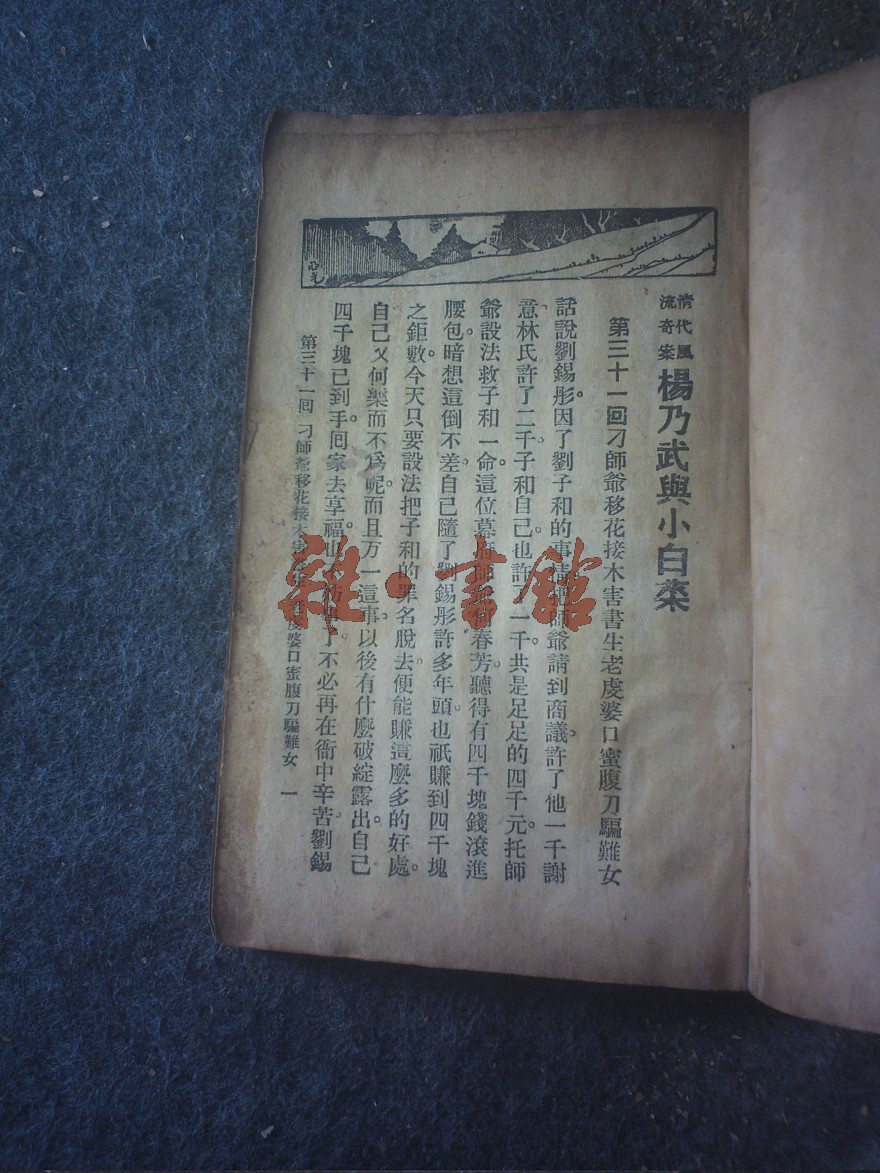 清代風
流奇案
楊乃武與小白菜
第三十一回 刁師爺移花接木害書生 老虔婆口蜜腹刀騙難女
話說劉錫彤。因了劉子和的事情。把師爺請到商議。許了他一千謝
意。林氏許了二千。子和自己也許一千。共是足足的四千元。托師
爺設法救子和一命。這位幕府師爺 春芳。聽得有四千塊錢滾進
腰包。暗想這倒不差。自己隨了劉錫彤許多年頭。也祇賺到四千塊
之鉅數。今天只要設法把子和的罪名脫去。便能賺這麼多的好處。
自己又何樂而不爲呢。而且万一這事。以後有什麼破綻露出。自己
四千塊已到手。囘家去享福。山 了。不必再在衙中辛苦。劉錫
第三十一回 刁師爺移花接木害書生 老虔婆口蜜腹刀騙難女 一
雜·書館